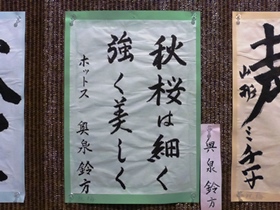 秋桜は細く
強く美しく
ホットス 奥泉鈴方
奥泉鈴方
声
山形ミチ子